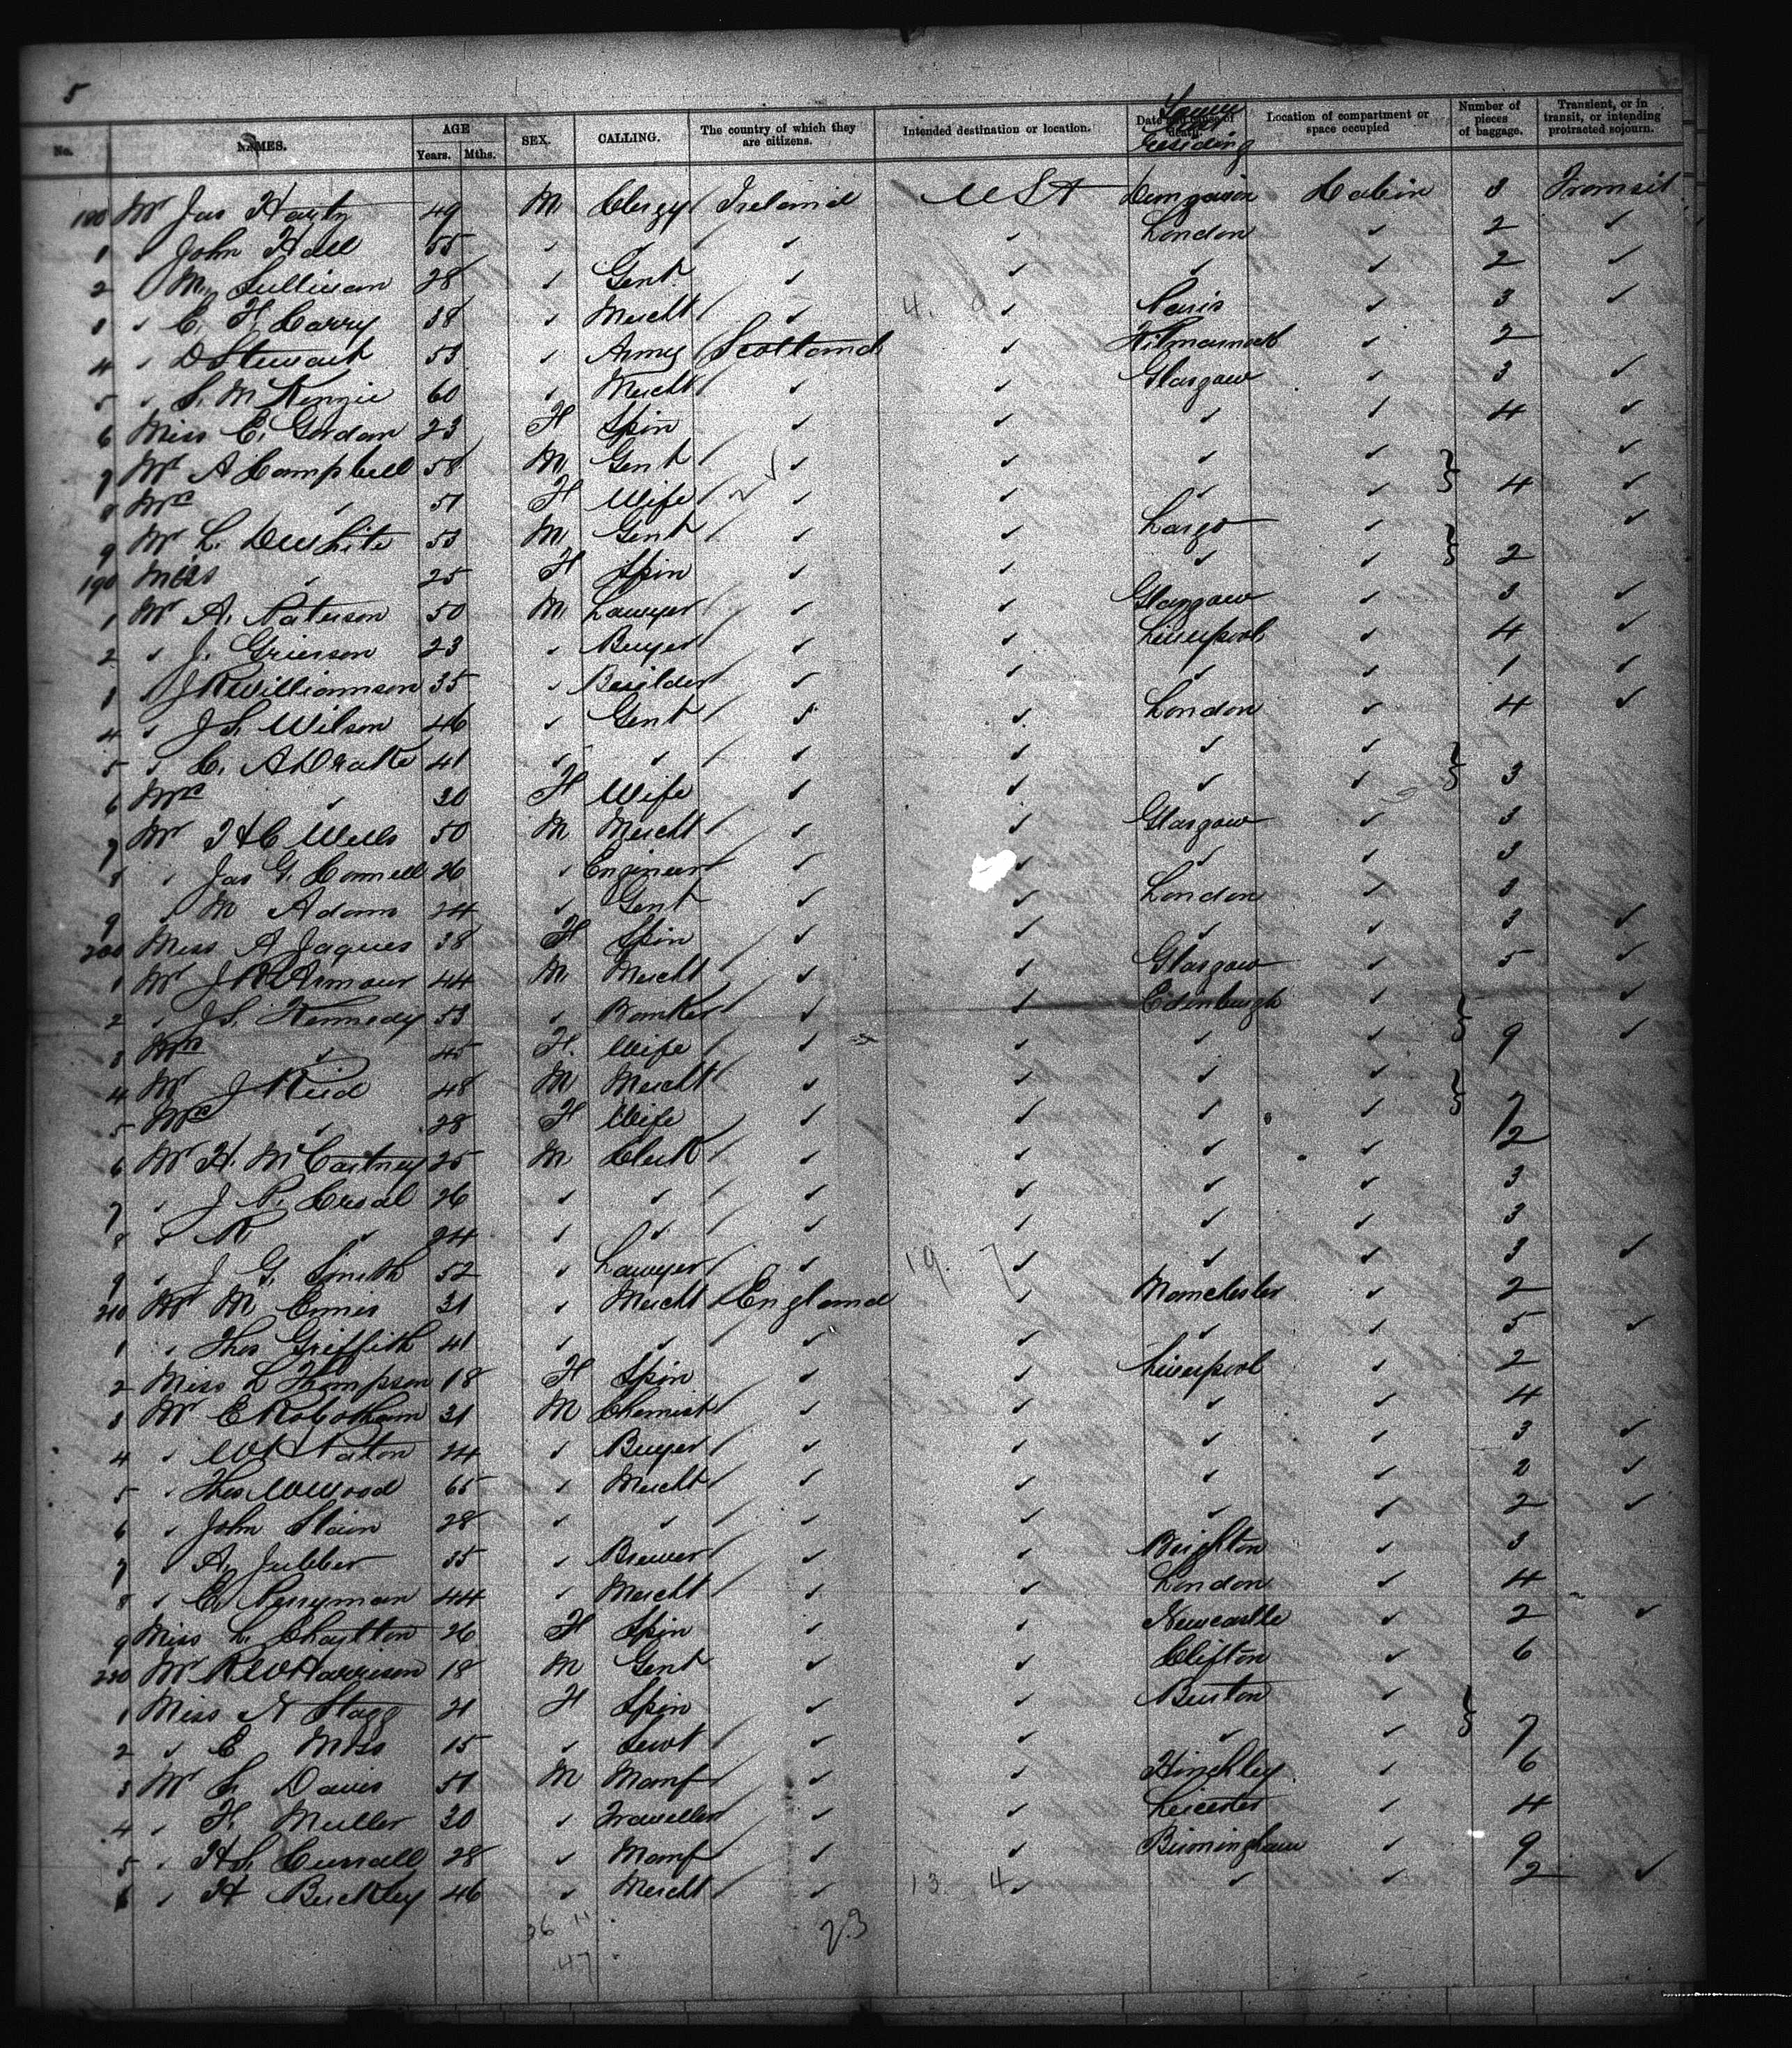 5
No. NAMES. AGE Years. Mths. SEX. CALLING. The country of which they are citizens. Intended destination or location. Date and cause of death. residing Location of compartment or space occupied Number of pieces of baggage. Transient, or in transit, or intending protracted sojourn.
180 Mr Jas 49 M Clergy Ireland USA Cabin 3 Transit
1 " John Hall 55 " " " " London " 2 "
2 " M. Sullivan 28 " Gent " " " " 2 "
3 " C. H. Carry 38 " Mercht " " Paris " 3 "
4 " D Stewart 53 " Army Scotland " Kilmarnock " 2
5 " S. McKenzie 60 " Mercht " " Glasgow " 3 "
6 Miss C. Gordon 23 F Spin " " " " 4 "
7 Mr A Campbell 58 M Gent " " " " "
8 Mrs " 51 F Wife " " " " 4 "
9 Mr L. D White 53 M Gent " " Largo " "
190 Miss " 25 F Spin " " " " 2
1 Mr A. Paterson 50 M Lawyer " " Glasgow " 3 "
2 " J. Grierson 23 " Buyer " " Liverpool " 4 "
3 " J R Williamson 35 " Builder " " " " 1 "
4 " J. S. Wilson 46 " Gent " " London " 4 "
5 " C. A Drake 41 " " " " " "
6 Mrs " 30 F Wife " " " " 3
7 Mr H C Wells 50 M Mercht " " Glasgow " 3
8 " Jas G. Connell 26 " Engineer " " " " 3
9 " M Adams 24 " Gent " " London " 3
200 Miss A Jaques 38 F Spin " " " " 3 "
1 Mr J R Armour 44 M Mercht " " Glasgow " 5 "
2 " J S. Kennedy 53 " Banker " " Edinburgh " "
3 Mrs " 45 F. Wife " " " " 9 "
4 Mr J Reid 48 M Mercht " " " "
5 Mrs " 28 F Wife " " " " 7
6 Mr H. McCartney 25 M Clerk " " " " 2
7 " J P. 26 " " " " " " 3
8 " R. " 24 " " " " " " 3
9 " J G. Smith 52 " Lawyer " " " " 3 "
210 Mr M Ennis 31 " Mercht England " Manchester " 2
1 " Thos Griffith 41 " " " " " " 5 "
2 Miss L Thompson 18 F Spin " " Liverpool " 2
3 Mr E Robotham 31 M Chemist " " " " 4
4 " W H Paton 24 " Buyer " " " " 3 "
5 " Thos W Wood 65 " Mercht " " " " 2 "
6 " John Slain 28 " " " " " " 2 "
7 " A. Jubber 35 " Brewer " " Brighton " 3
8 " C. Perryman 44 " Mercht " " London " 4
9 Miss L. Chaytton 26 F Spin " " Newcastle " 2 "
220 Mr R W Harrison 18 M Gent " " Clifton " 6
1 Miss N Stagg 21 F Spin " " Burton "
2 " E Moss 15 " Servt " " " " 7
3 Mr S. Davis 51 M Manf " " Hinckley " 6
4 " F. Muller 30 " Traveller " " Leicester " 4
5 " H S. Currall 28 " Manf " " Birmingham " 9
6 " H Buckley 46 " Mercht " " " " 2 "
36 11
47
23